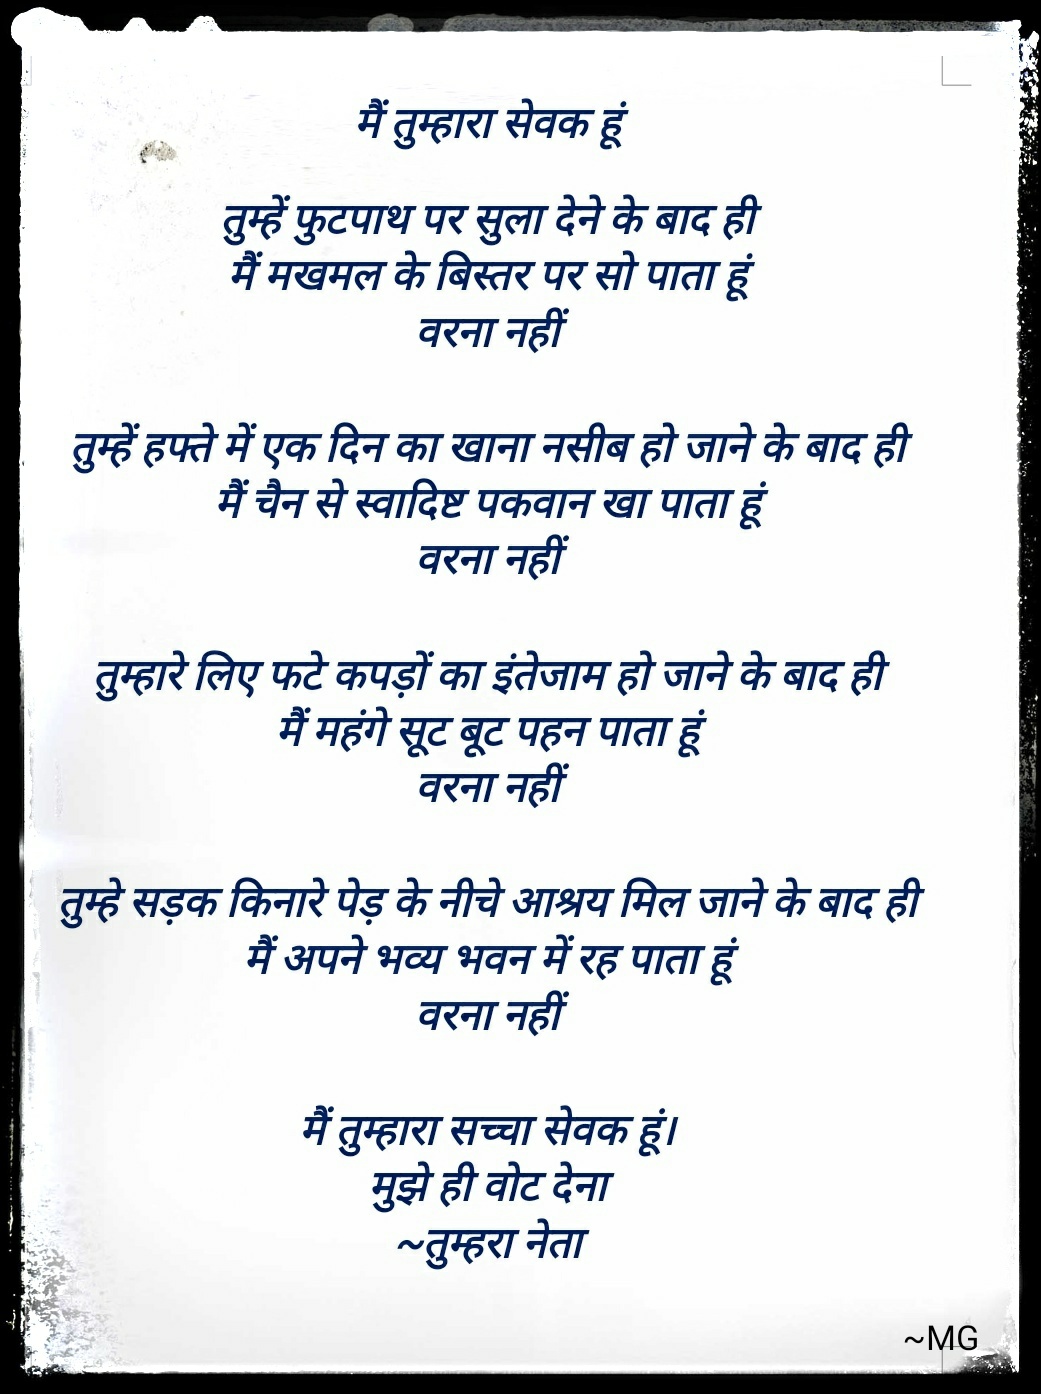 मैं तुम्हारा सेवक हूं
तुम्हें फुटपाथ पर सुला देने के बाद ही
मैं मखमल के बिस्तर पर सो पाता हूं
वरना नहीं
तुम्हें हफ्ते में एक दिन का खाना नसीब हो जाने के बाद ही
मैं चैन से स्वादिष्ट पकवान खा पाता हूं
वरना नहीं
तुम्हारे लिए फटे कपड़ों का इंतेजाम हो जाने के बाद ही
मैं महंगे सूट बूट पहन पाता हूं
वरना नहीं
तुम्हे सड़क किनारे पेड़ के नीचे आश्रय मिल जाने के बाद ही
मैं अपने भव्य भवन में रह पाता हूं
वरना नहीं
मैं तुम्हारा सच्चा सेवक हूं।
मुझे ही वोट देना
~तुम्हरा नेता
~MG